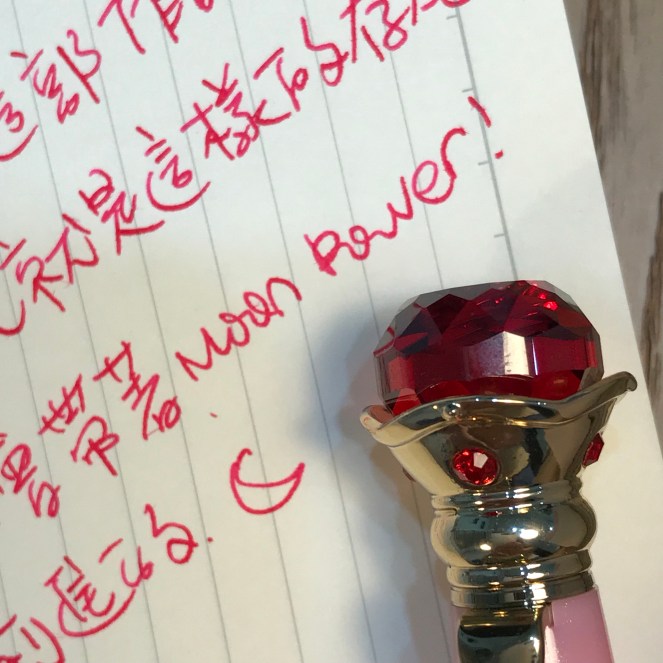 這部作
就是這樣的存在
帶著 Moon Power!
到達的.